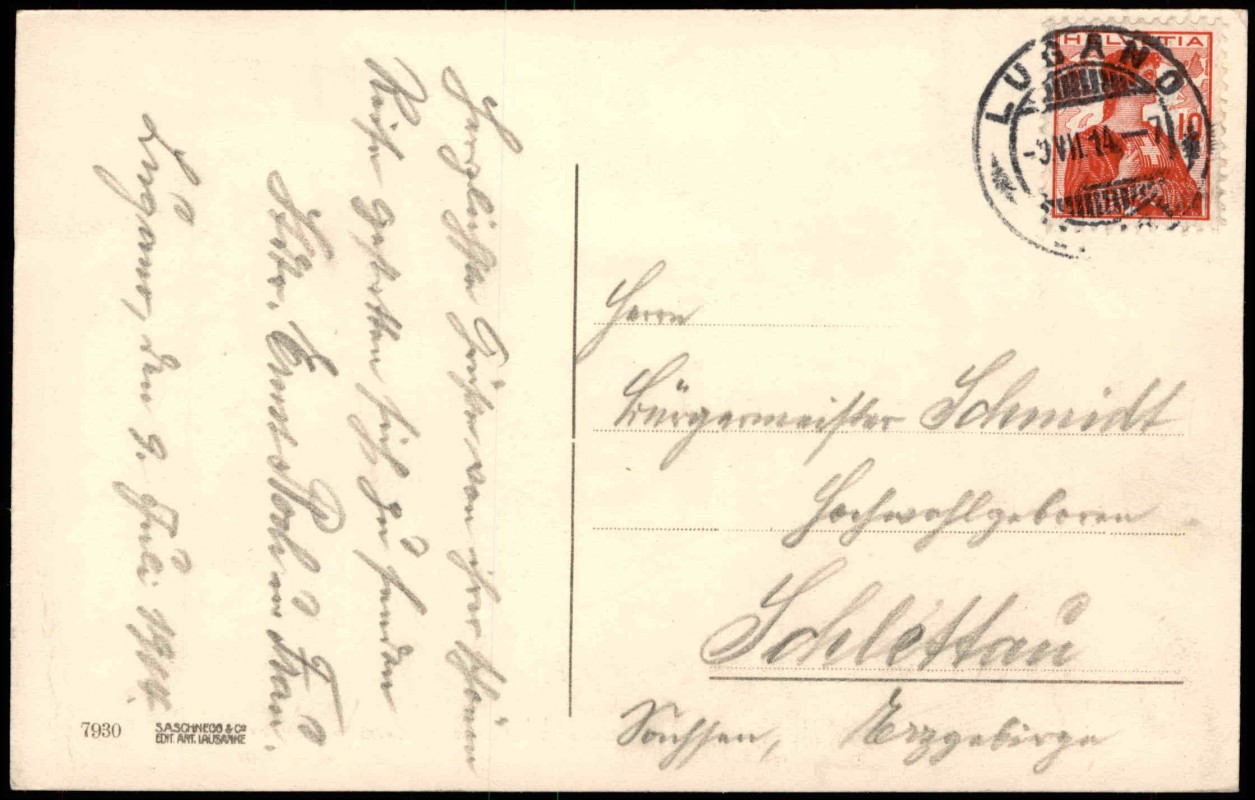 Herzlichste Grüße von ihrer schönen
Reise gestatten sich zu senden
Ernst u. Frau.
Lugano, den 9. Juli 1914.
7930
S.A. SCHNEGG & Cº
EDIT. ART. LAUSANNE
HELVETIA
10
LUGANO
-9 VII 14 - 7
Herrn
Bürgermeister Schmidt
Hochwohlgeboren
Schlettau
Sachsen, Erzgebirge